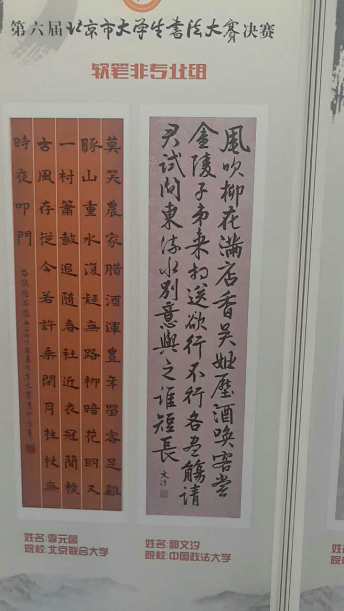 第六届北京市大学生书法大赛决赛
软笔非专业组
莫笑農家腊酒渾豊年留客足雞
豚山重水複疑無路柳暗花明又
一村簫鼓追随春社近衣冠簡樸
古風存從今若許乗閒月拄杖無
時夜叩門
風吹柳花滿店香吴姬壓酒唤客尝
金陵子弟来相送欲行不行各盡觴请
君试问東流水别意與之谁短長
文汐
姓名:李元
院校:北京联合大学
姓名:文汐
院校:中国政法大学